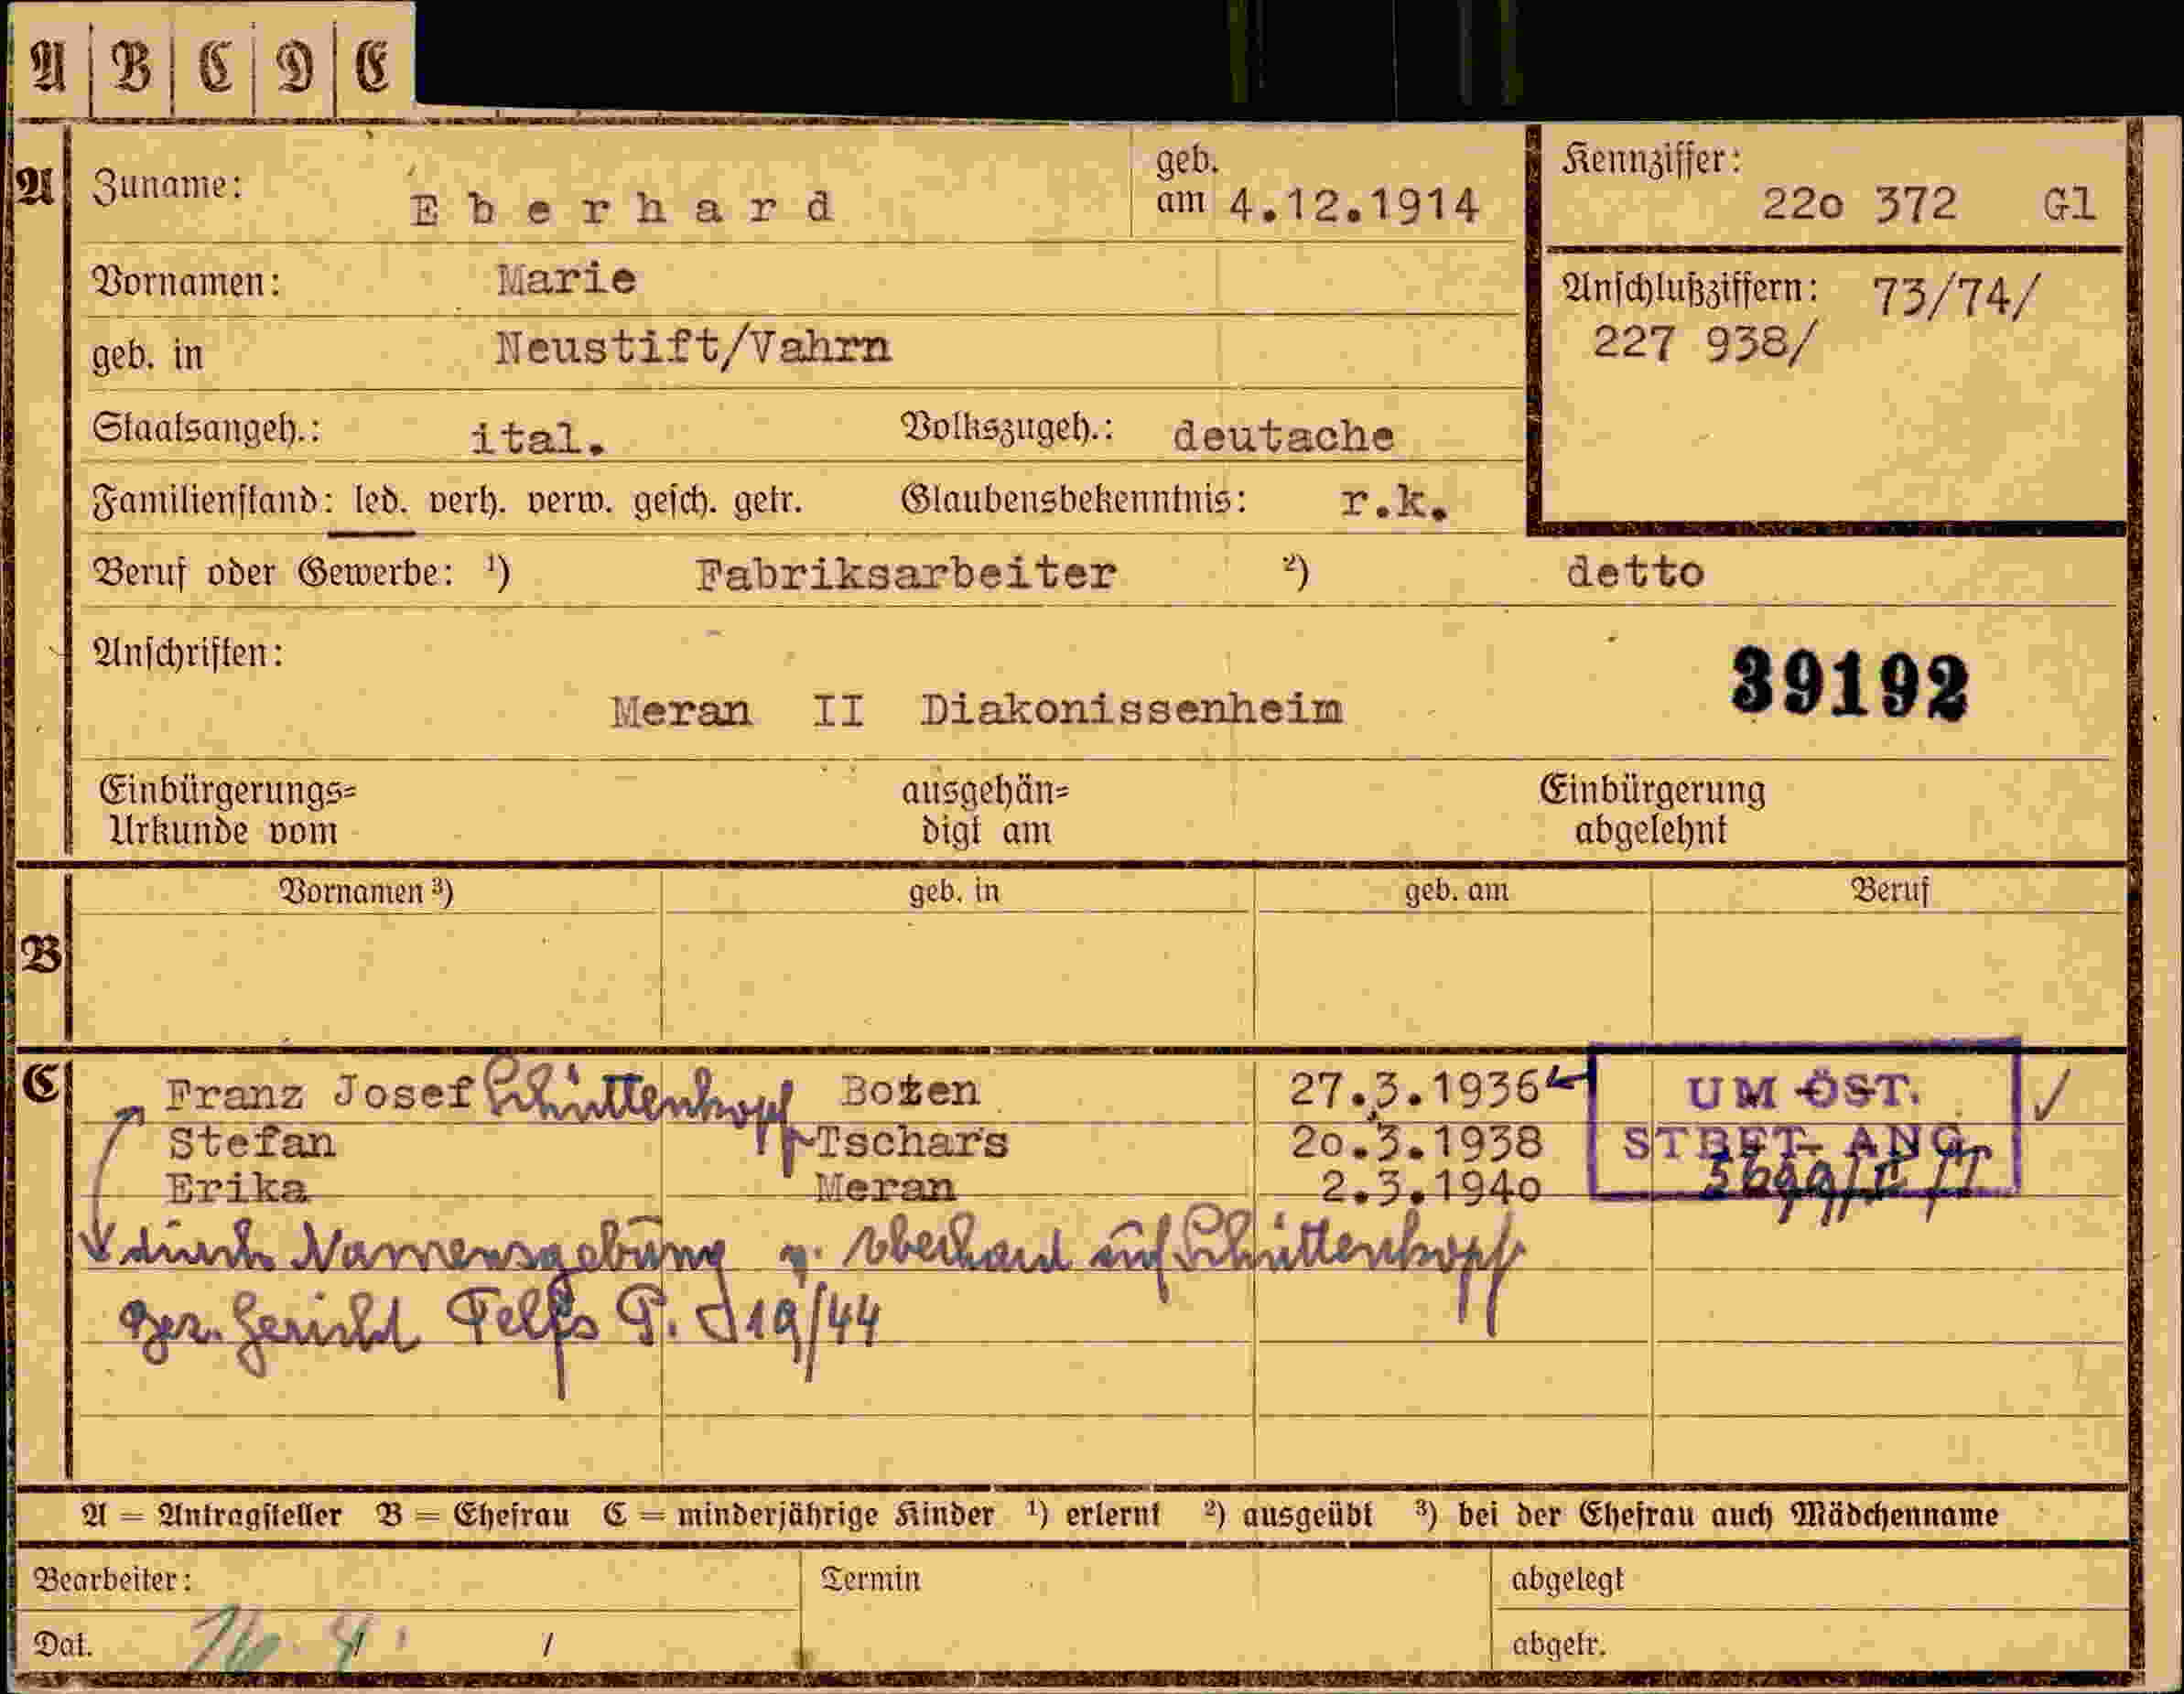 A B C D E
A Zuname: Eberhard geb. am 4.12.1914 Kennziffer: 22o 372 Gl
Vornamen: Marie
Anschlußziffern: 73/74/
227 938/
geb. in Neustift/Vahrn
Staatsangeh.: ital. Volkszugeh.: deutache
Familienstand: led. verh. verw. gesch. getr. Glaubensbekenntnis: r.k.
Beruf oder Gewerbe: ¹) Fabriksarbeiter ²) detto
Anschriften:
39192
Meran II Diakonissenheim
Einbürgerungs= ausgehän= Einbürgerung
Urkunde vom digt am abgelehnt
Vornamen ³) geb. in geb. am Beruf
B
C Franz Josef Schüttenkopf Bozen 27.3.1936 UM ÖST.
Stefan Tschars 2o.3.1938 ST ANG.
Erika Meran 2.3.194o
durch Namensgebung v. Eberhard auf Schüttenkopf
Bez. Gericht Telfs P. 19/44
A = Antragsteller B = Ehefrau C = minderjährige Kinder ¹) erlernt ²) ausgeübt ³) bei der Ehefrau auch Mädchenname
Bearbeiter: Termin abgelegt
Dat. / abgetr.